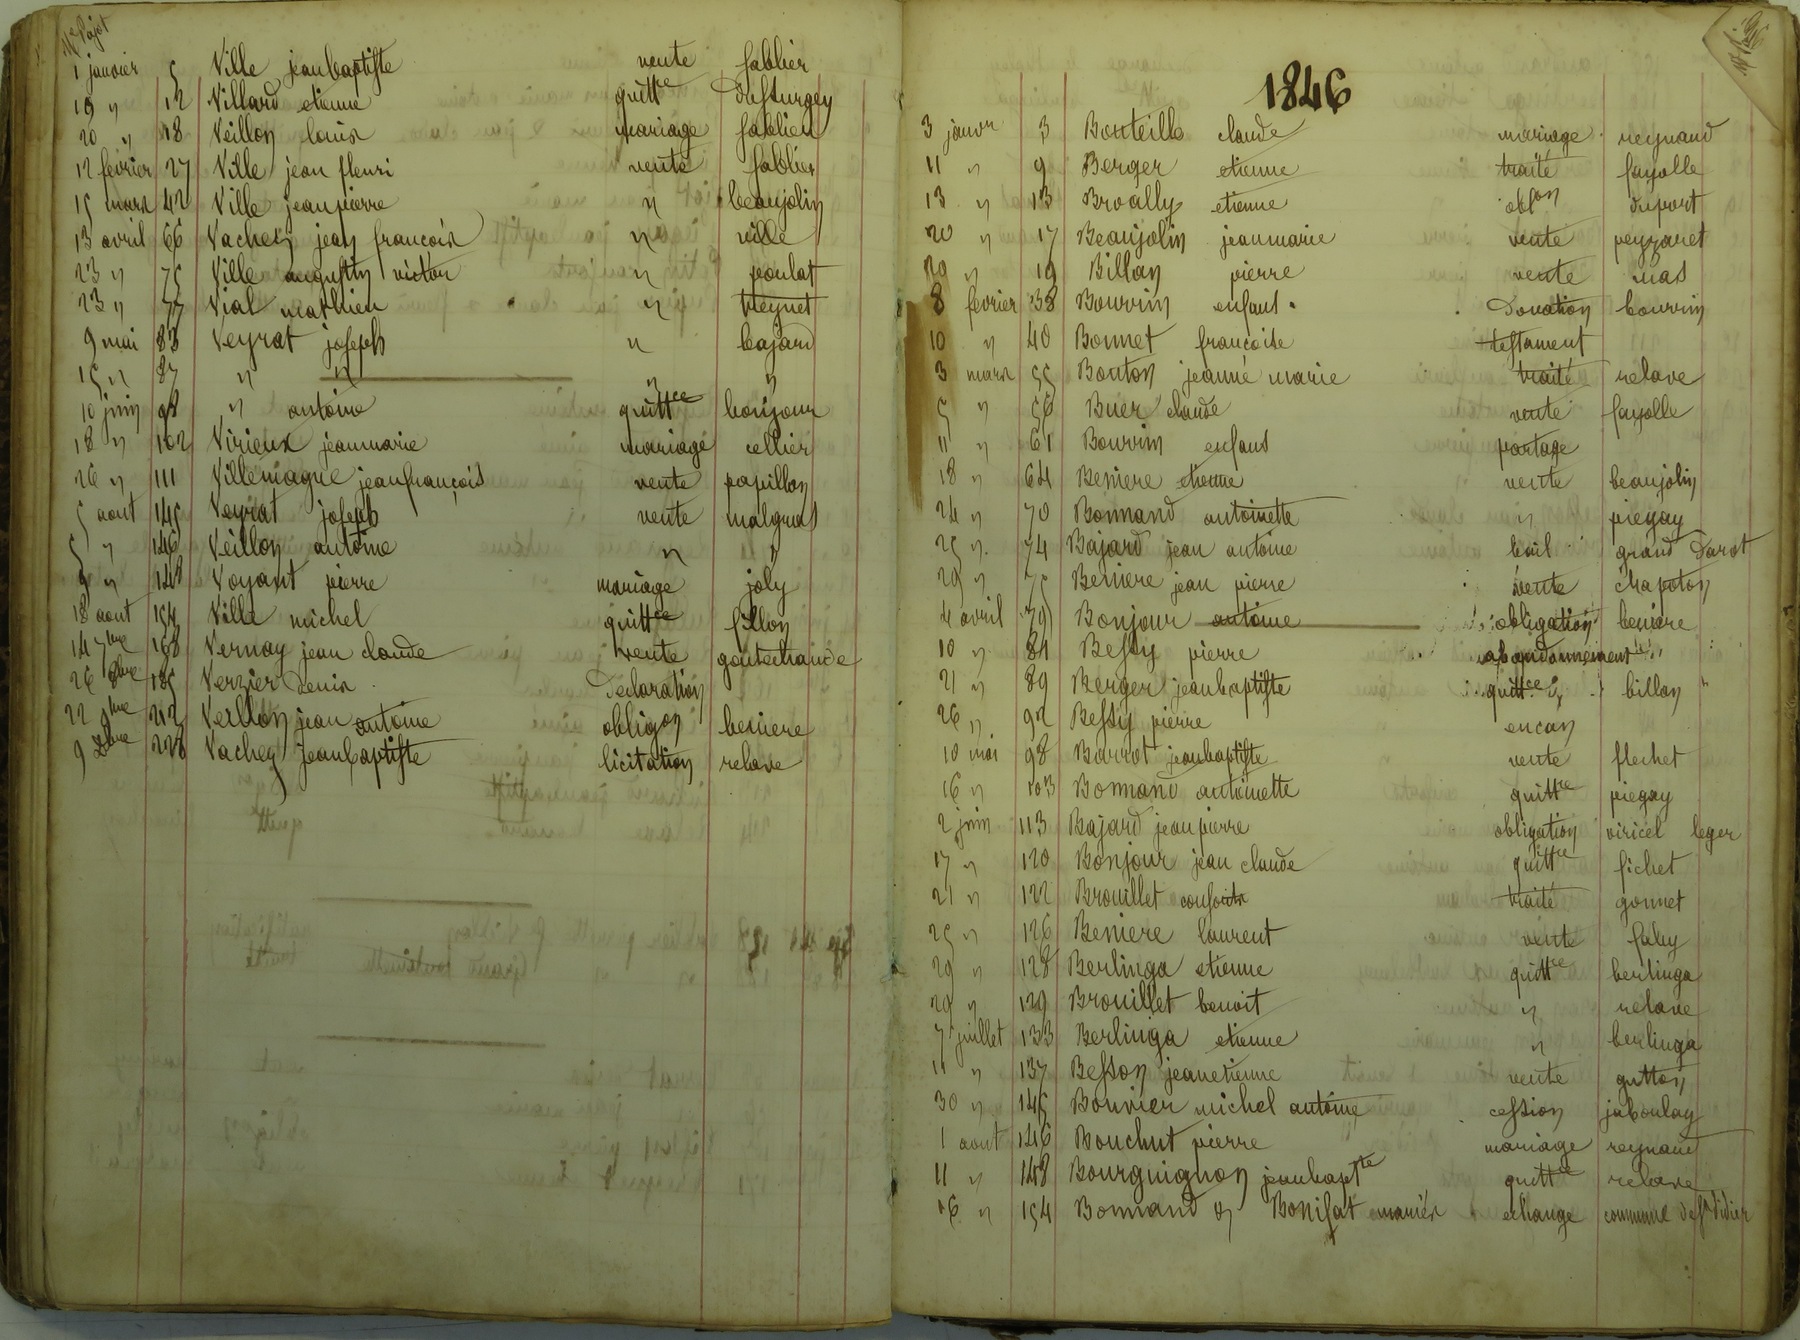 Me Pajot
1 janvier 5 Ville jeanbaptiste vente sablier
19 " 12 Villard etienne quittce dessurgey
20 " 18 Veillon louis mariage sablier
12 fevrier 27 Ville jean fleuri vente sablier
15 mars 42 Ville jeanpierre " beaujolin
13 avril 66 Vachez jean francois " ville
23 " 75 Ville augustin victor " poulat
23 " 77 Vial mathieu " treynet
9 mai 83 Veyrat joseph " bajard
15 " 87 " " " "
10 juin 98 " antoine quittce bonjour
18 " 102 Virieux jeanmarie mariage cellier
26 " 111 Villemagne jeanfrançois vente papillon
5 aout 145 Veyrat joseph vente malgras
5 " 146 Veillon antoine " "
9 " 148 Voyant pierre mariage joly
18 aout 154 Ville michel quittce fillon
14 7bre 168 Vernay jean claude vente goutechaude
26 8bre 185 Verzier denis Declaration
22 9bre 212 Veillon jean antoine obligon beniere
9 Xbre 228 Vachez jeanbaptiste licitation relave
1846
3 janvr 3 Bouteille claude mariage reynaud
11 " 9 Berger etienne traité fayolle
13 " 13 Broally etienne oblon duport
20 " 17 Beaujolin jeanmarie vente peyzaret
20 " 19 Billan pierre vente mas
8 fevrier 38 Bouvrin enfans Donation bourrin
10 " 40 Bonnet françoise testament
3 mars 55 Bouton jeanne marie traité relave
5 " 56 Buer claude vente fayolle
11 " 61 Bouvrin enfans partage
18 " 64 Beniere etienne vente beaujolin
24 " 70 Bonnand antoinette " piegay
25 " 74 Bajard jean antoine bail grand Darot
29 " 75 Beniere jean pierre vente chapoton
4 avril 79 Bonjour antoine obligation beniere
10 " 84 Bessy pierre abandonnement
21 " 89 Berger jeanbaptiste quittce billan
26 " 92 Bessy pierre encan
10 mai 98 Barrot jeanbaptiste vente flechet
16 " 103 Bonnand antoinette quittce piegay
2 juin 113 Bajard jeanpierre obligation viricel leger
17 " 120 Bonjour jean claude quittce fichet
21 " 122 Brouillet consorts traité gonnet
25 " 126 Beniere laurent vente faby
29 " 128 Berlinga etienne quittce berlinga
29 " 129 Brouillet benoit " relave
7 juillet 133 Berlinga etienne " berlinga
11 " 137 Besson jeanetienne vente gutton
30 " 145 Bouvier michel antoine cession jaboulay
1 aout 146 Bouchut pierre mariage reynaud
11 " 148 Bourguignon jeanbaptte quittce relave
16 " 154 Bonnand & Bonifat mariés echange commune de st didier